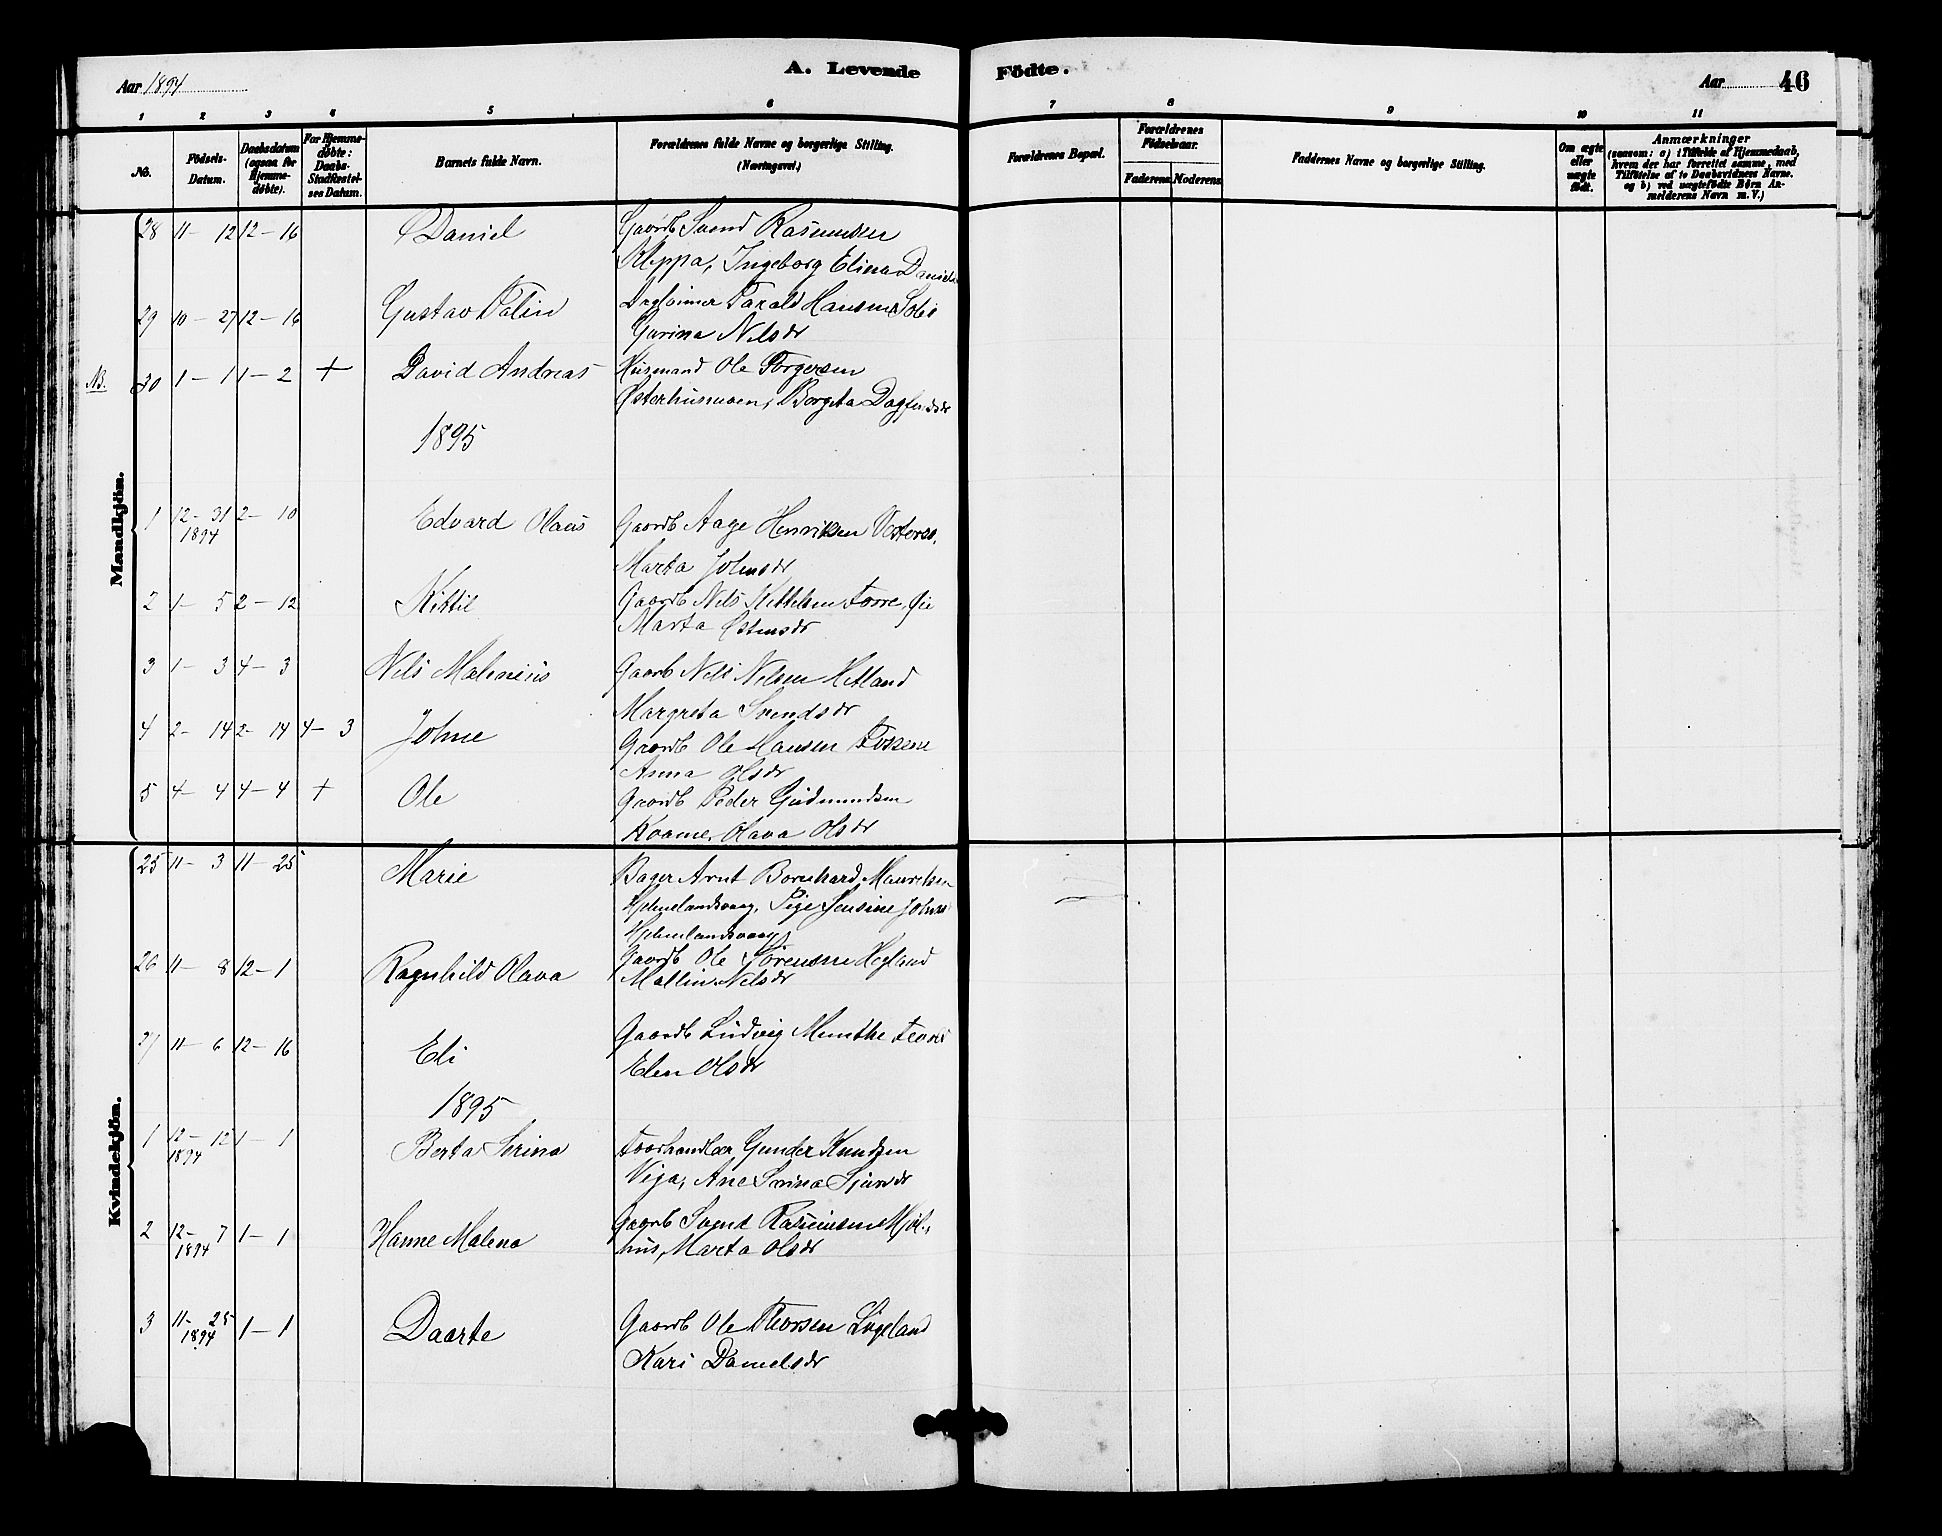 Aar 1894
A. Levende
Födte.
Aar
46
1 2 3 4 5 6
7 8 9 10 11
No.
Födsels-Datum.
Daabsdatum (ogsaa for Hjemme-döbte).
For Hjemme-döbte: Daabs-Stadfæstel-ses Datum.
Barnets fulde Navn.
Forældrenes fulde Navne og borgerlige Stilling. (Næringsvei.)
Forældrenes Bopæl.
Forældrenes Födselsaar.
Faderens. Moderens.
Faddernes Navne og borgerlige Stilling.
Om ægte eller uægte födt.
Anmærkninger
(saasom: a) i Tilfælde af Hjemmedaab,
hvem der har forrettet samme, med
Tilföielse af to Daabsvidners Navne.
og b) ved uægtefödte Börn An-
melderens Navn m. V.)
Mandkjön.
28 11 - 12 12 - 16 Daniel Gaardb Svend Rasmussen
Kleppa, Ingeborg Elina
29 10 - 27 12 - 16 Gustav Tarald Hansen
Gurina Nelsdr
NB. 30 1 - 1 1 - 2 + David Andreas Husmand Ole Torgersen
Østerhusmoen, Borgita
1895
1 12 - 31 1894 2 - 10 Edvard Olaus Gaardb Aage Henriksen
Marta Johnsdr
2 1 - 5 2 - 12 Kittil Gaardb Nels Kittelsen
Marta Østensdr
3 1 - 3 4 - 3 Nels Malenius Gaardb Nels Nelsen Hetland
Margreta Svendsdr
4 2 - 14 2 - 14 4 - 3 Johne Gaardb Ole Hansen
Anna Olsdr
5 4 - 4 4 - 4 + Ole Gaardb Peder Gudmundsen
Kvame, Olava Olsdr
Kvindekjön.
25 11 - 3 11 - 25 Marie Bager Arnt Bernhard Mauritsen
Hjelmelandsvaag, Pige Jensine
Hjelmelandsvaag
26 11 - 8 12 - 1 Ragnhild Olava Gaardb Ole Sørensen
Mallin Nelsdr
27 11 - 6 12 - 16 Eli Gaardb Ludvig Munthe
Elen Olsdr
1895
1 12 - 12 1894 1 - 1 Berta Serina Gunder Knudsen
Viga, Ane Serina
2 12 - 7 1894 1 - 1 Hanne Malena Gaardb Svend Rasmussen Hjel-
hus, Marta Olsdr
3 11 - 25 1894 1 - 1 Daarte Gaardb Ole Thorsen
Kari Danielsdr